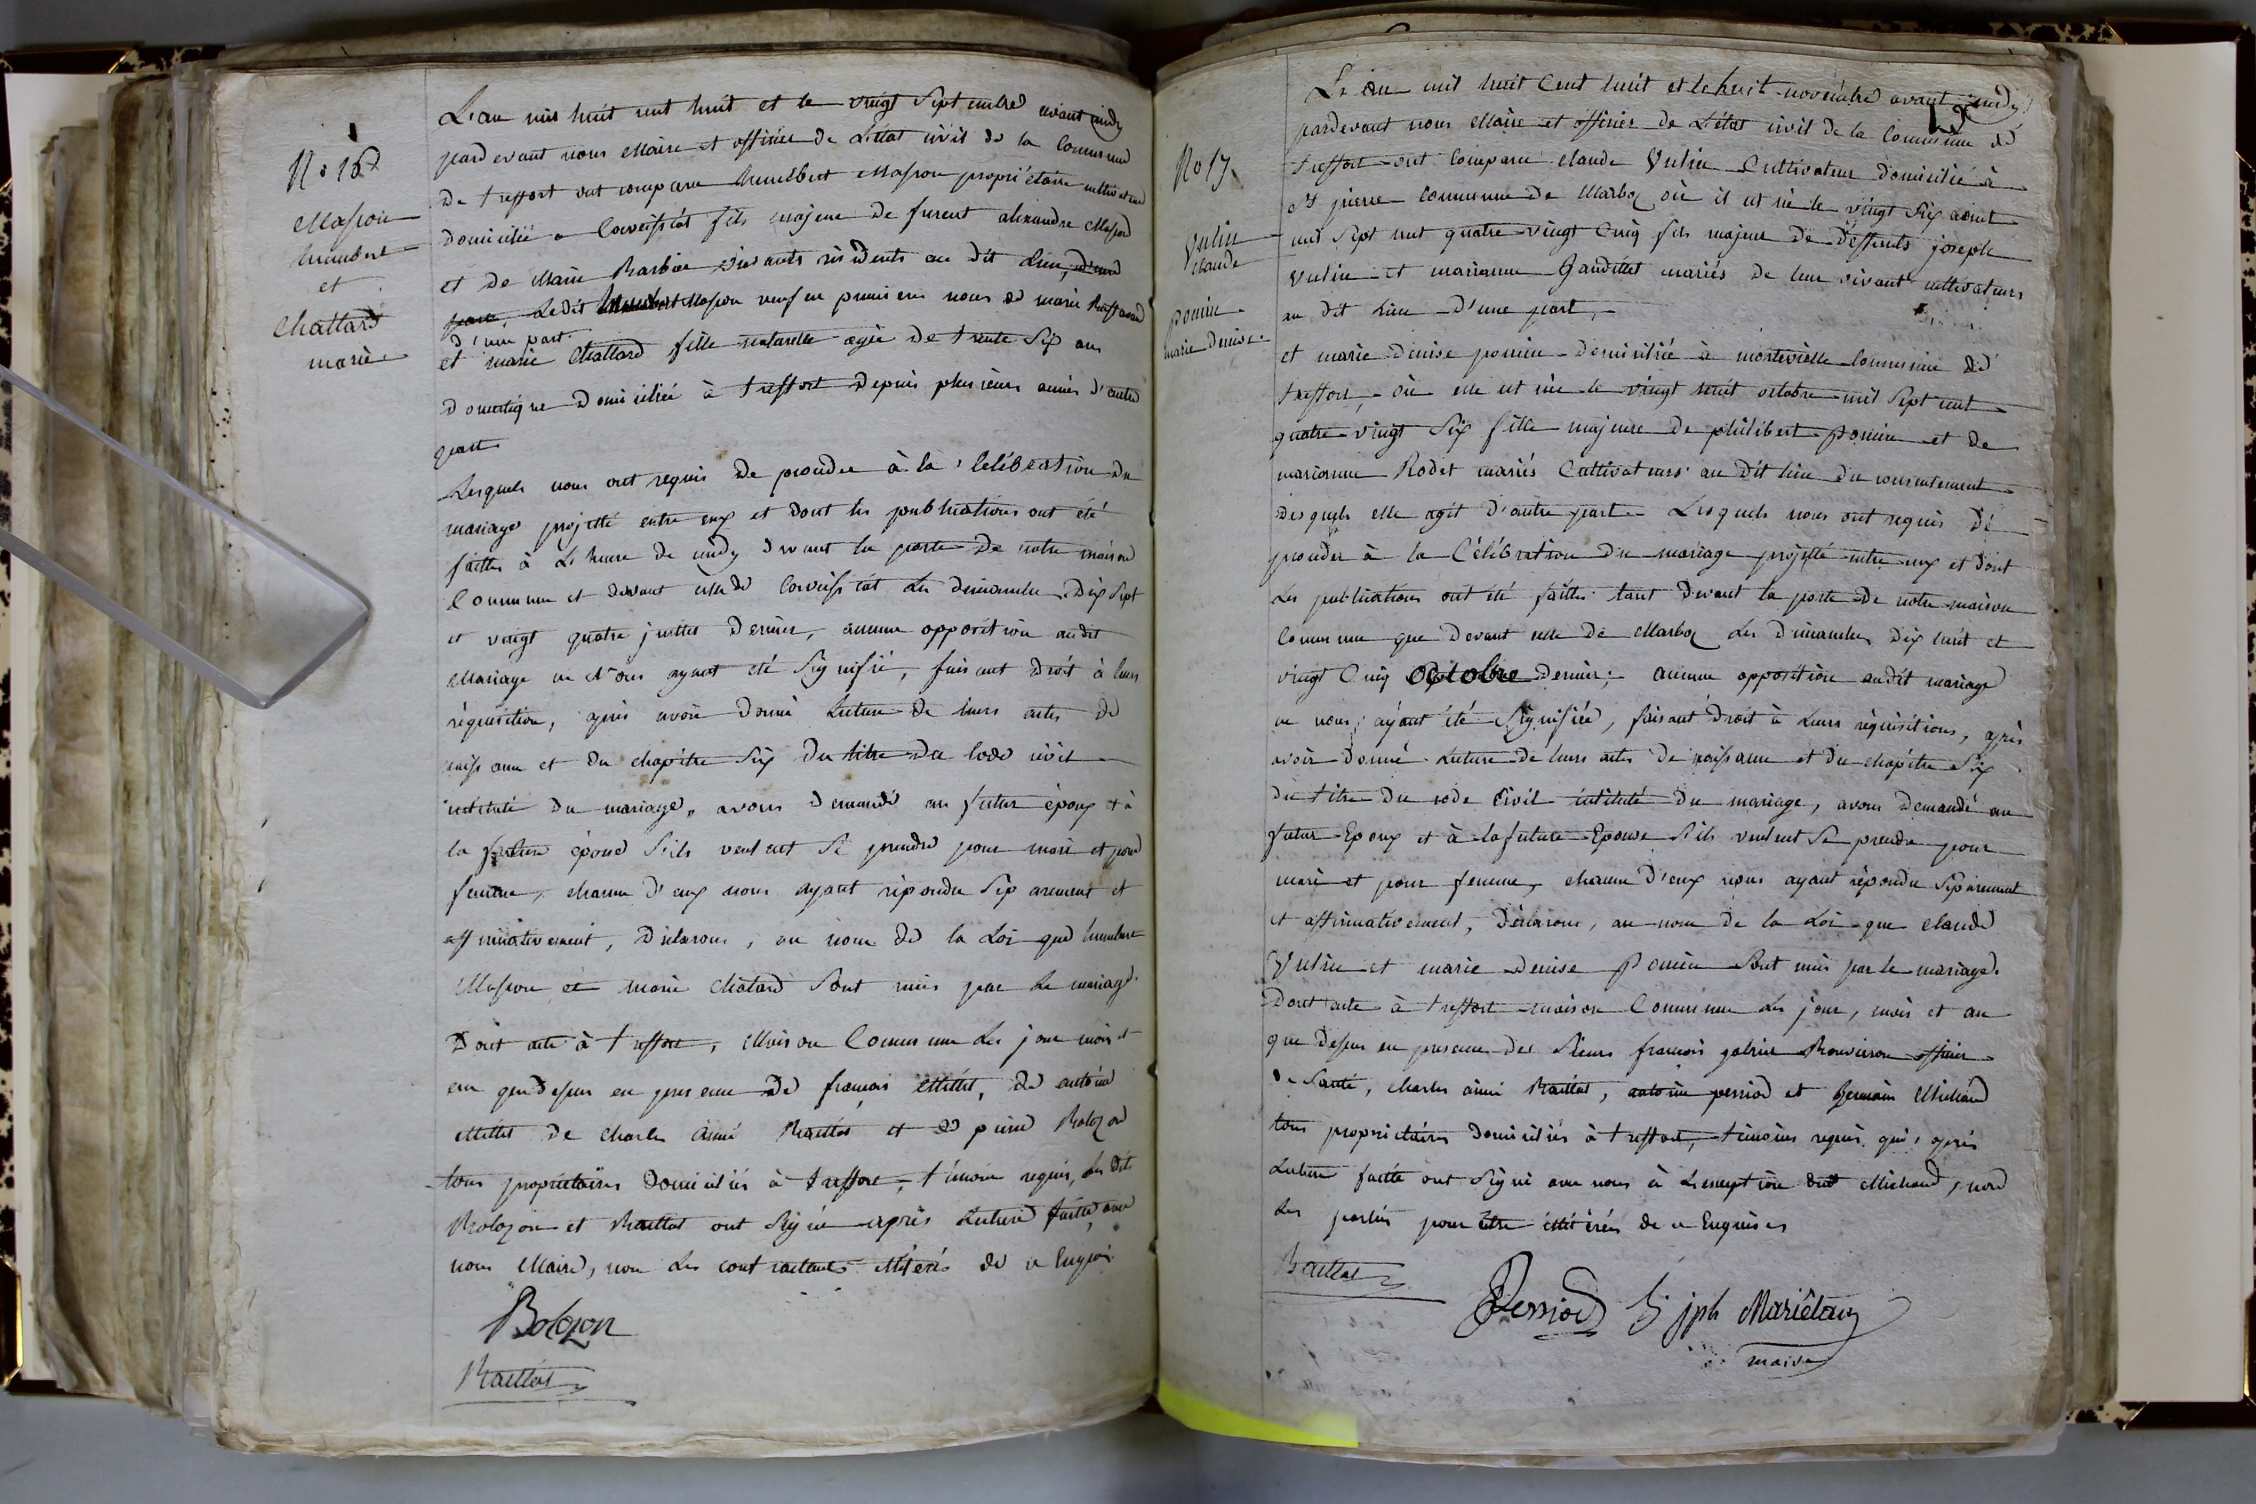 N° 16
Masson
humbert
et
Chattard
marie
L'an mil huit cent huit et le vingt Septembre avant midy
pardevant nous Maire et officier de L'état civil de la Commune
de treffort ont comparu humbert Masson propriétaire cultivateur
domicilié a Corveissiat fils majeur de furent alexandre Masson
et de Marie Barbier vivants résidents au dit Lieu, d'une
part, Ledit humbert Masson veuf en premieres noces de marie
d'une part
et marie Chattard fille naturelle agée de trente Six ans
domestique domiciliée à treffort depuis plusieurs années d'autre
part
Lesquels nous ont requis de proceder à la Celébration du
mariage projetté entre eux et dont les publications ont été
faittes à L'heure de midy devant la porte de notre maison
Commune et devant celle de Corveissiat Les dimanches Dix Sept
et vingt quatre juillet dernier, aucune opposition audit
Mariage ne Nous ayant été Signifié, faisant droit à leurs
réquisition, après avoir donné Lecture de leurs actes de
naissance et du chapitre Six du titre du Code civil
intitulé du mariage, avons demandé au futur époux et à
la future épouse S'ils veulent Se prendre pour mari et pour
femme, chacun d'eux nous ayant répondu Séparement et
affirmativement, Déclarons, au nom de la Loi que humbert
Masson et marie Chatard Sont unis par Le mariage.
Dont acte à treffort, Maison Commune Les jour mois et
an que dessus en presence de françois Millet, de antoine
Millet de Charles aimé Raillat et de pierre Bolozon
tous propriétaires Domiciliés à treffort, témoins requis, les dits
Bolozon et Raillat ont Signé après Lecture faitte, avec
nous Maire, non Les contractants illitérés de ce Enquis
Bolozon
Raillat
N° 17
Vulin
claude
ponin
marie Denise
L'an mil huit Cent huit et le huit novembre avant midy
pardevant nous Maire et officier de L'état civil de la Commune de
treffort ont Comparu claude Vulin Cultivateur domicilié à
St pierre Commune de Marboz où il est né le vingt Six aout
mil Sept cent quatre vingt Cinq fils majeur de deffunts joseph
Vulin et marianne Gaudillet mariés de leur vivant cultivateurs
au dit Lieu d'une part,
et marie denise ponin domiciliée à montevielle Commune de
treffort, où elle est née le vingt huit octobre mil Sept cent
quatre vingt Six fille majeure de philibert ponin et de
marianne Rodet mariés Cultivateurs au dit lieu du consentement
desquels elle agit d'autre part. Lesquels nous ont requis de
proceder à la Célébration du mariage projetté entre eux et dont
Les publications ont été faittes tant devant la porte de notre maison
Commune que devant celle de Marboz Les Dimanches Dix huit et
vingt Cinq octobre dernier; aucune opposition audit mariage
ne nous ayant été Signifiée, faisant droit à Leurs réquisitions, après
avoir donné Lecture de leurs actes de naissance et du chapitre Six
du titre du code Civil intitulé du mariage, avons demandé au
futur Epoux et à la future Epouse S'ils veulent Se prendre pour
mari et pour femme, chacun d'eux nous ayant répondu Séparement
et affirmativement, Déclarons, au nom de la Loi que claude
Vulin et marie denise Ponin Sont unis par le mariage.
Dont acte à treffort maison Commune Les jour, mois et an
que Dessus en presence des Sieurs françois gabriel officier
de Santé, charles aimé Raillat, antoine perriod et Germain Michaud
tous proprietaires domiciliés à treffort, témoins requis qui, après
Lecture faitte ont Signé avec nous à L'exception dud Michaud, non
Les parties pour être illitérées de ce Enquises
Raillat
Perriod jph Mariétan
maire